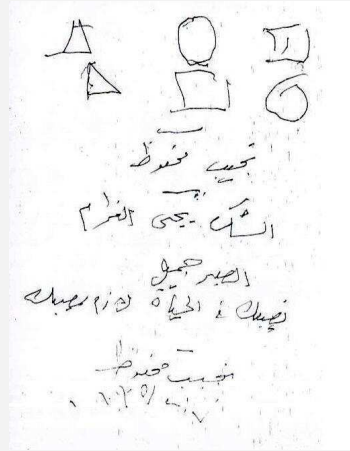 نجيب محفوظ
الشك يحيى الغرام
الصبر جميل
نصيبك في الحياة لازم يصيبك
نجيب محفوظ